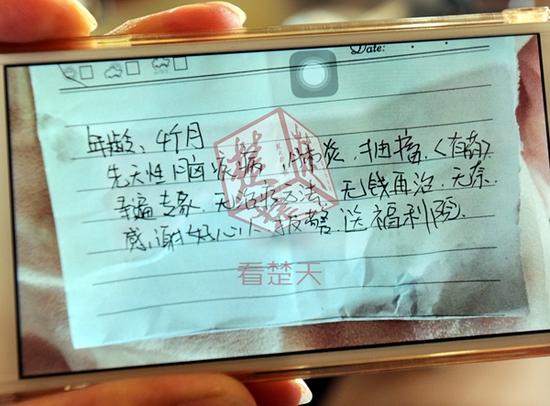 Date:
年龄、4个月
先天性脑疾病、肺炎、抽搐、(有药)
寻遍专家、无治疗方法、无钱再治、无奈
感谢好心人报警送福利院.
看楚天